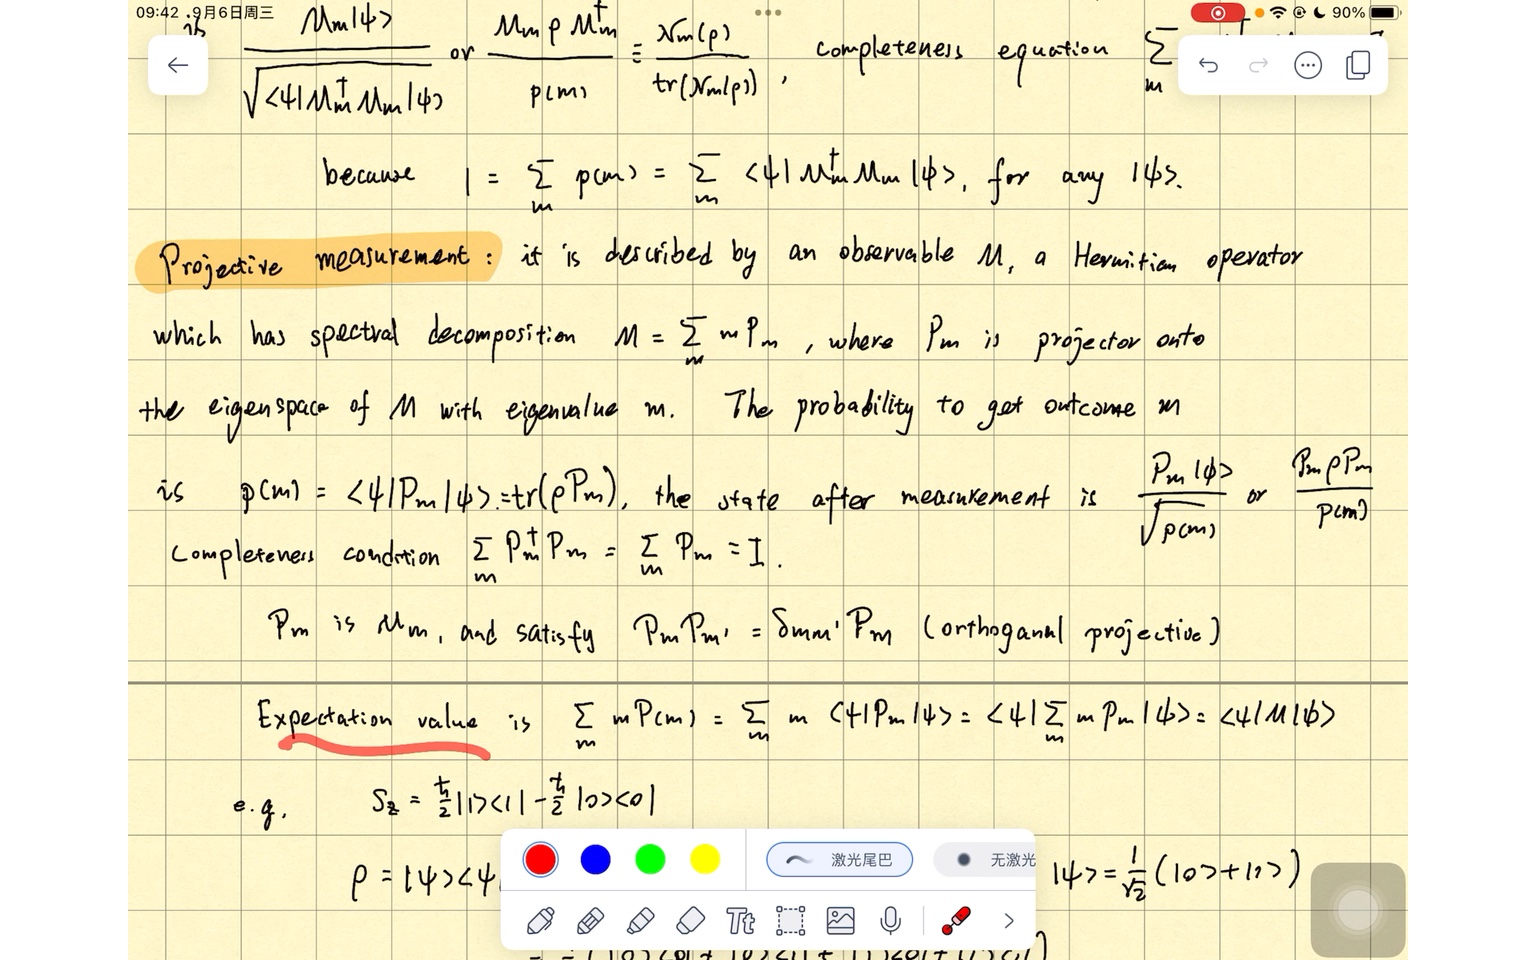 09:42 9月6日周三 90%
is Mm|ψ> / √<ψ|Mm†Mm|ψ> or MmρMm† / p(m) ≡ Nm(ρ) / tr(Nm(ρ)), completeness equation Σm
because 1 = Σm p(m) = Σm <ψ|Mm†Mm|ψ>, for any |ψ>.
Projective measurement: it is described by an observable M, a Hermitian operator
which has spectral decomposition M = Σm mPm, where Pm is projector onto
the eigenspace of M with eigenvalue m. The probability to get outcome m
is p(m) = <ψ|Pm|ψ>.=tr(ρPm), the state after measurement is Pm|ψ> / √p(m) or PmρPm / p(m)
Completeness condition Σm Pm†Pm = Σm Pm = I.
Pm is Mm, and satisfy PmPm' = δmm'Pm (orthoganal projective)
Expectation value is Σm mP(m) = Σm m <ψ|Pm|ψ> = <ψ|Σm mPm|ψ> = <ψ|M|ψ>
e.g. Sz = ħ/2|1><1| - ħ/2|0><0|
ρ = |ψ><ψ |ψ> = 1/√2 (|0>+|1>)
激光尾巴 无激光
Tt